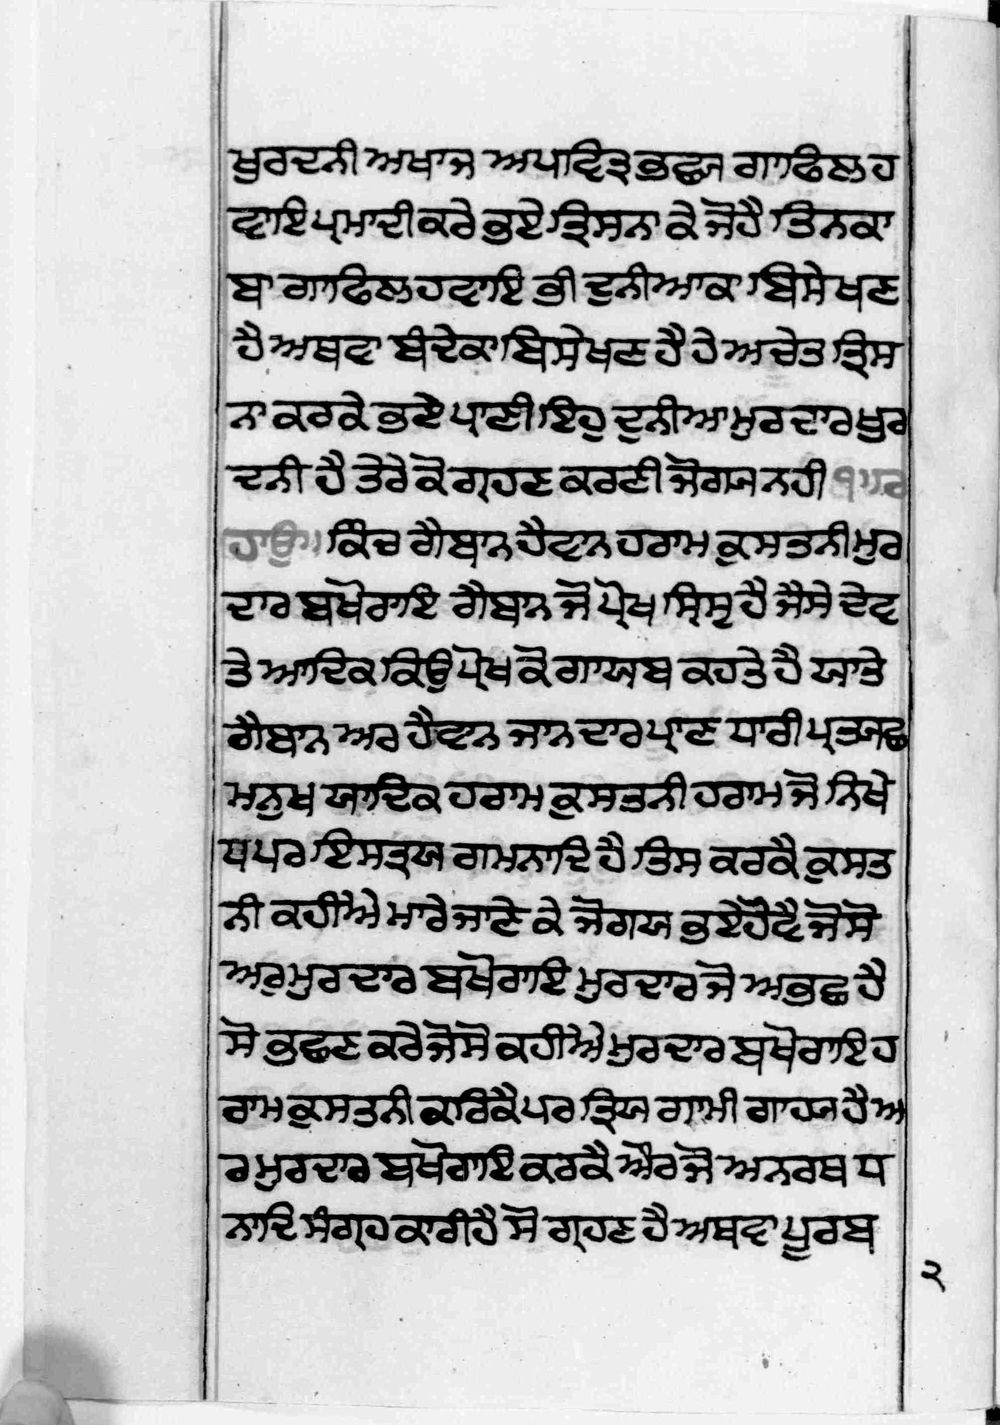 ਖੁਰਦਨੀ ਅਖਾਜ ਅਪਵਿਤ੍ਰ ਭਛ੍ਯ ਗਾਫਿਲ ਹ
ਵਾਇ ਪ੍ਰਮਾਦੀ ਕਰੇ ਭਏ ਤ੍ਰਿਸਨਾ ਕੇ ਜੋ ਹੈ ਤਿਨ ਕਾ
ਬਾ ਗਾਫਿਲ ਹਵਾਇ ਭੀ ਦੁਨੀਆ ਕਾ ਬਿਸੇਖਣ
ਹੈ ਅਥਵਾ ਬੰਦੇ ਕਾ ਬਿਸੇਖਣ ਹੈ ਹੇ ਅਚੇਤ ਤ੍ਰਿਸ
ਨਾ ਕਰਕੇ ਭਏ ਪ੍ਰਾਣੀ ਇਹੁ ਦੁਨੀਆ ਮੁਰਦਾਰ ਖੁਰ
ਦਨੀ ਹੈ ਤੇਰੇ ਕੋ ਗ੍ਰਹਣ ਕਰਣੀ ਜੋਗ੍ਯ ਨਹੀ ੧॥ਰ
ਹਾਉ॥ ਕਿੰਚ ਗੈਬਾਨ ਹੈਵਾਨ ਹਰਾਮ ਕੁਸਤਨੀ ਮੁਰ
ਦਾਰ ਬਖੋਰਾਇ ਗੈਬਾਨ ਜੋ ਪ੍ਰੋਖ ਸ੍ਰਿਸ੍ਟ ਹੈ ਜੈਸੇ ਦੇਵ
ਤੇ ਆਦਿਕ ਕਿਉ ਪ੍ਰੋਖ ਕੋ ਗਾਯਬ ਕਹਤੇ ਹੈ ਯਾਤੇ
ਗੈਬਾਨ ਅਰ ਹੈਵਾਨ ਜਾਨਦਾਰ ਪ੍ਰਾਣ ਧਾਰੀ ਪ੍ਰਤ੍ਯਛ
ਮਨੁਖ ਯਾਦਿਕ ਹਰਾਮ ਕੁਸਤਨੀ ਹਰਾਮ ਜੋ ਨਿਖੇ
ਧ ਪਰ ਇਸਤ੍ਰਯ ਗਮਨਾਦਿ ਹੈ ਤਿਸ ਕਰਕੈ ਕੁਸਤ
ਨੀ ਕਹੀਐ ਮਾਰੇ ਜਾਣੇ ਕੇ ਜੋਗਯ ਭਏ ਹੋਵੈ ਜੋ ਸੋ
ਅਰੁ ਮੁਰਦਾਰ ਬਖੋਰਾਇ ਮੁਰਦਾਰ ਜੋ ਅਭਛ ਹੈ
ਸੋ ਭਛਣ ਕਰੇ ਜੋ ਸੋ ਕਹੀਐ ਮੁਰਦਾਰ ਬਖੋਰਾਇ ਹ
ਰਾਮ ਕੁਸਤਨੀ ਕਰਿਕੈ ਪਰ ਤ੍ਰਿਯ ਗਾਮੀ ਗਾਹ੍ਯ ਹੈ ਅ
ਰ ਮੁਰਦਾਰ ਬਖੋਰਾਇ ਕਰਕੈ ਔਰ ਜੋ ਅਨਰਥ ਧ
ਨਾਦਿ ਸੰਗ੍ਰਹ ਕਾਰੀ ਹੈ ਸੋ ਗ੍ਰਹਣ ਹੈ ਅਥਵਾ ਪੂਰਬ
੨